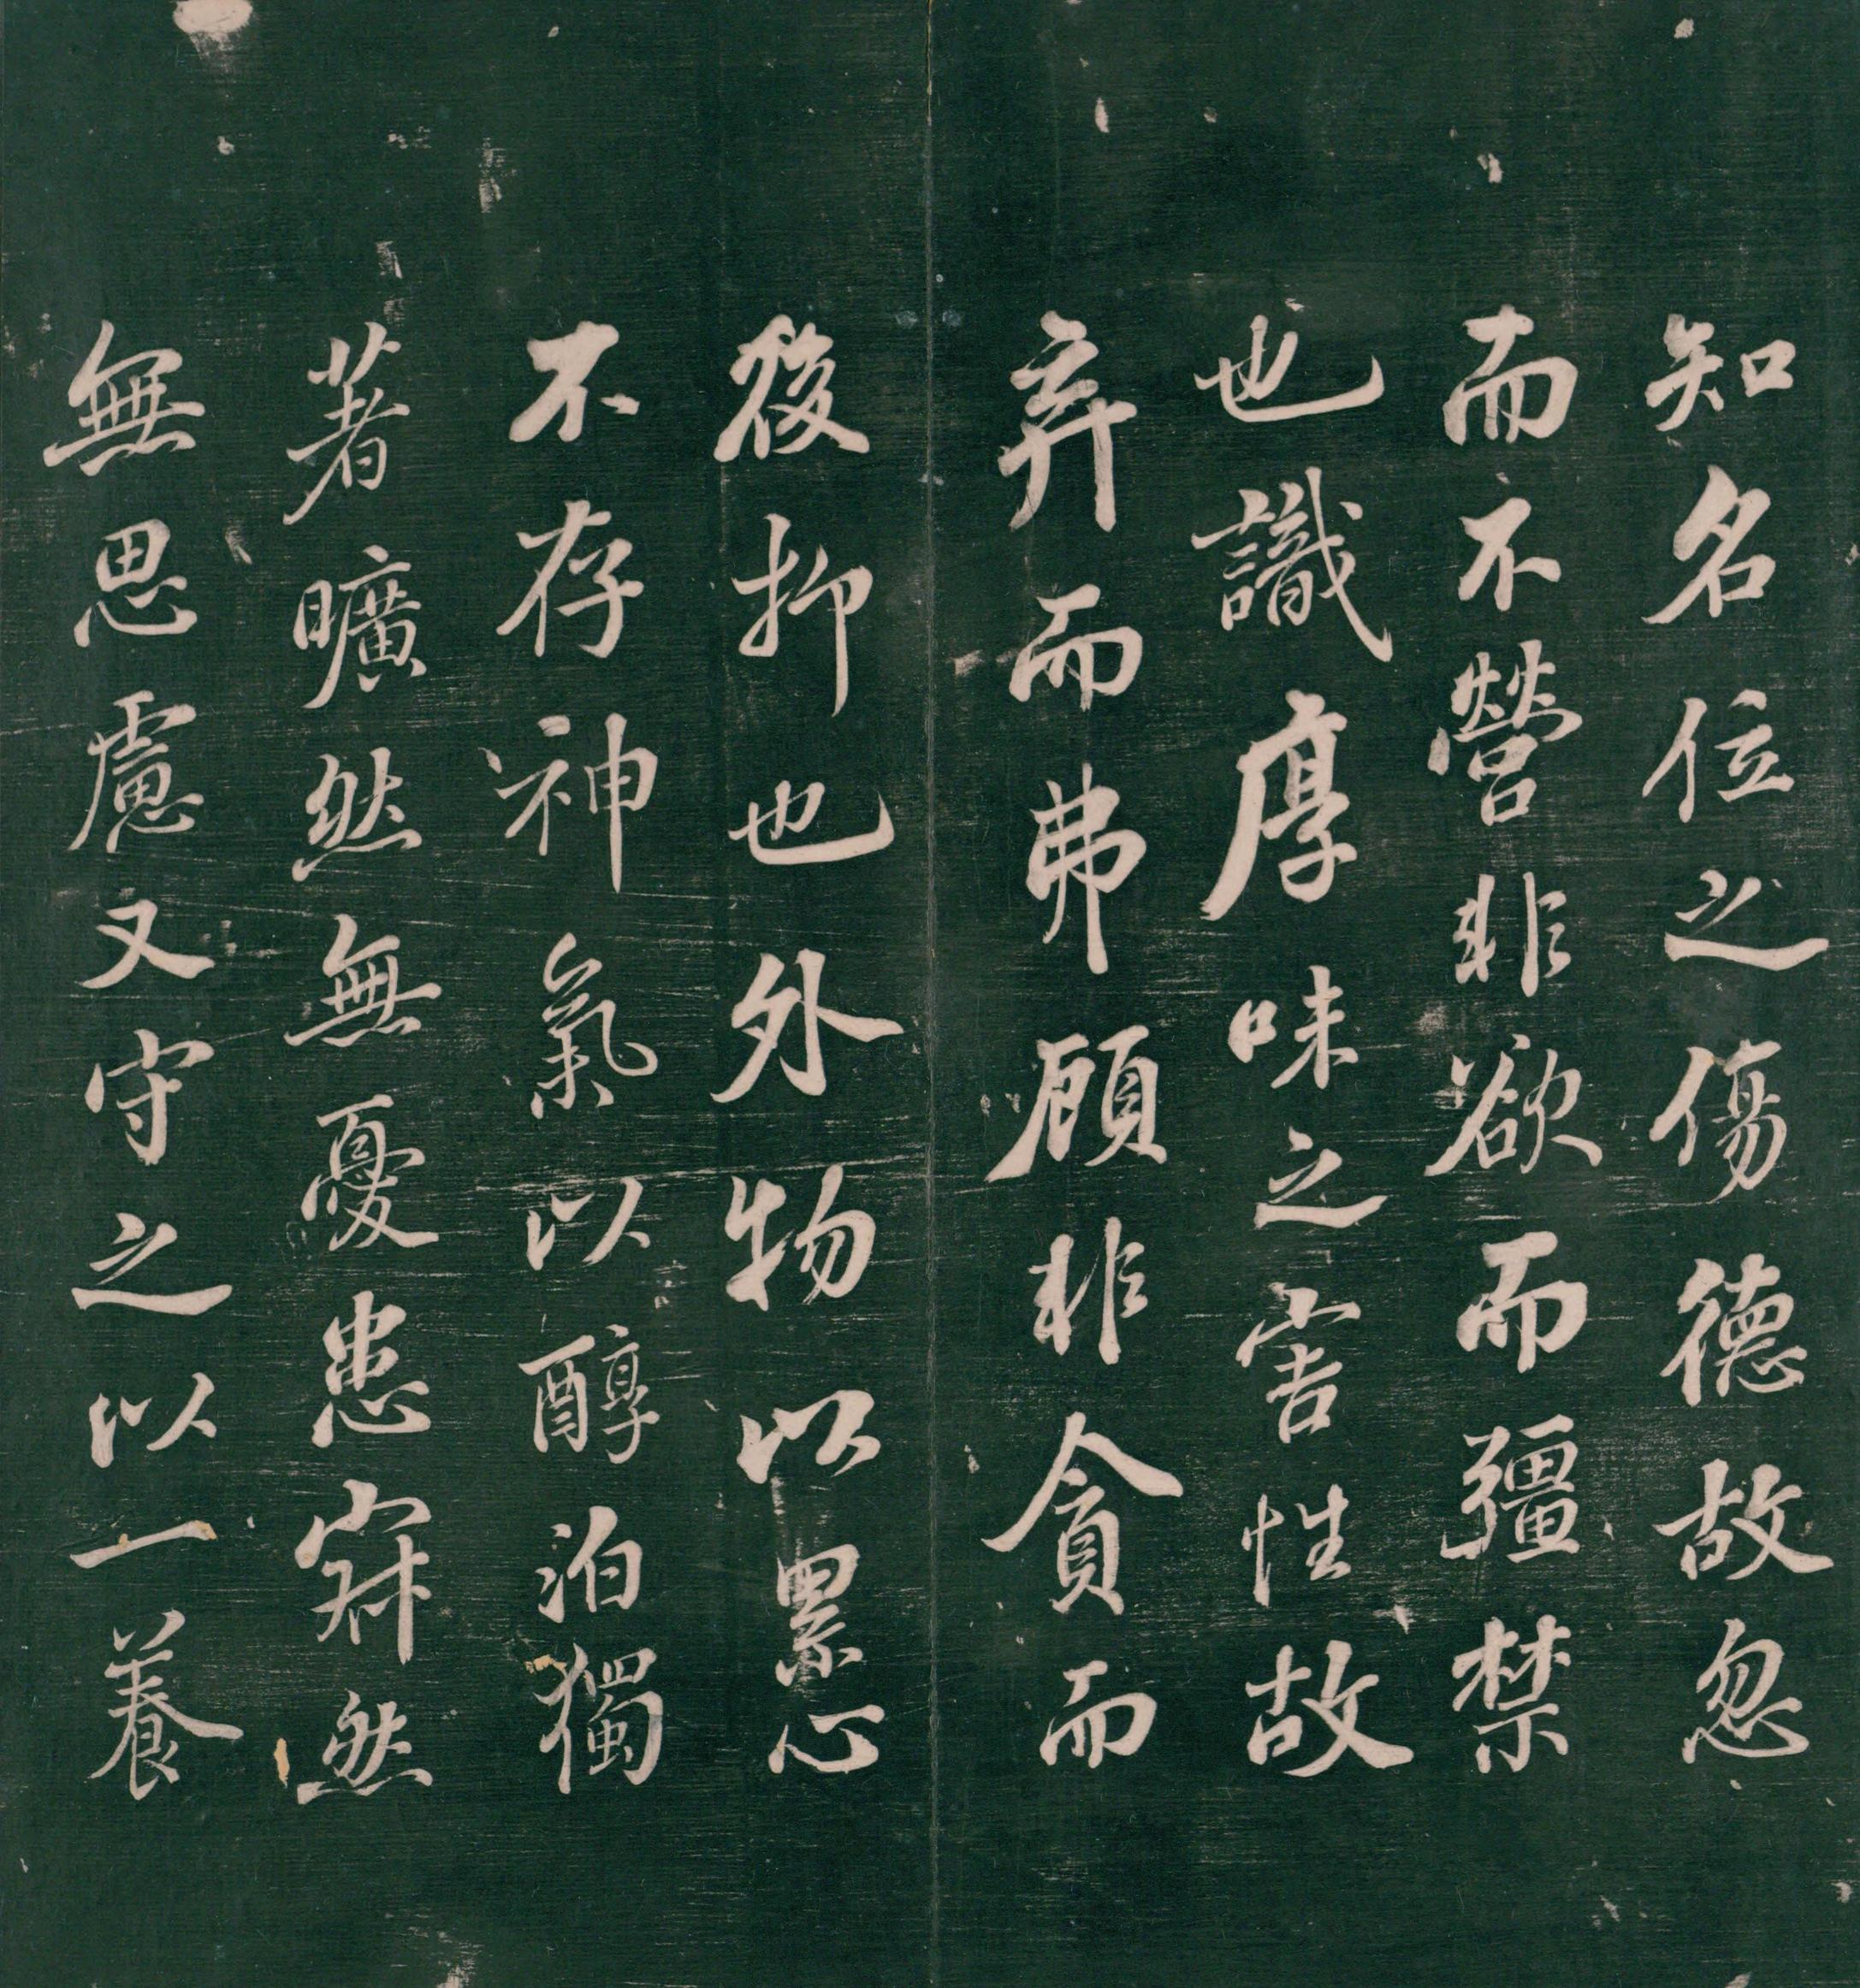 知名位之傷德故忽
而不營非欲而彊禁
也識厚味之害性故
弃而弗顧非貪而
後抑也外物以累心
不存神氣以醇泊獨
著曠然無憂患寂然
無思慮又守之以一養